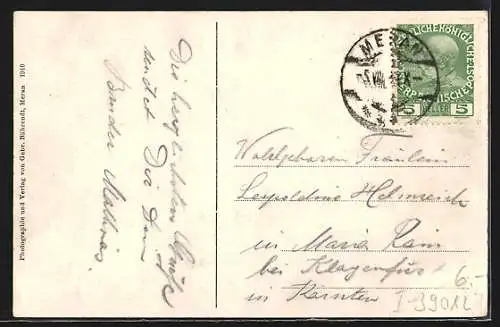 Photographie und Verlag von Gebr. Bährendt, Meran 1910
Die herzlichsten Grüße
sendet Dir Dein
Bruder Mathias.
MERAN
5
5
Wohlgeboren Fräulein
Leopoldine Helmreich
in Maria Rain
bei Klagenfurt
in Kärnten
6.-